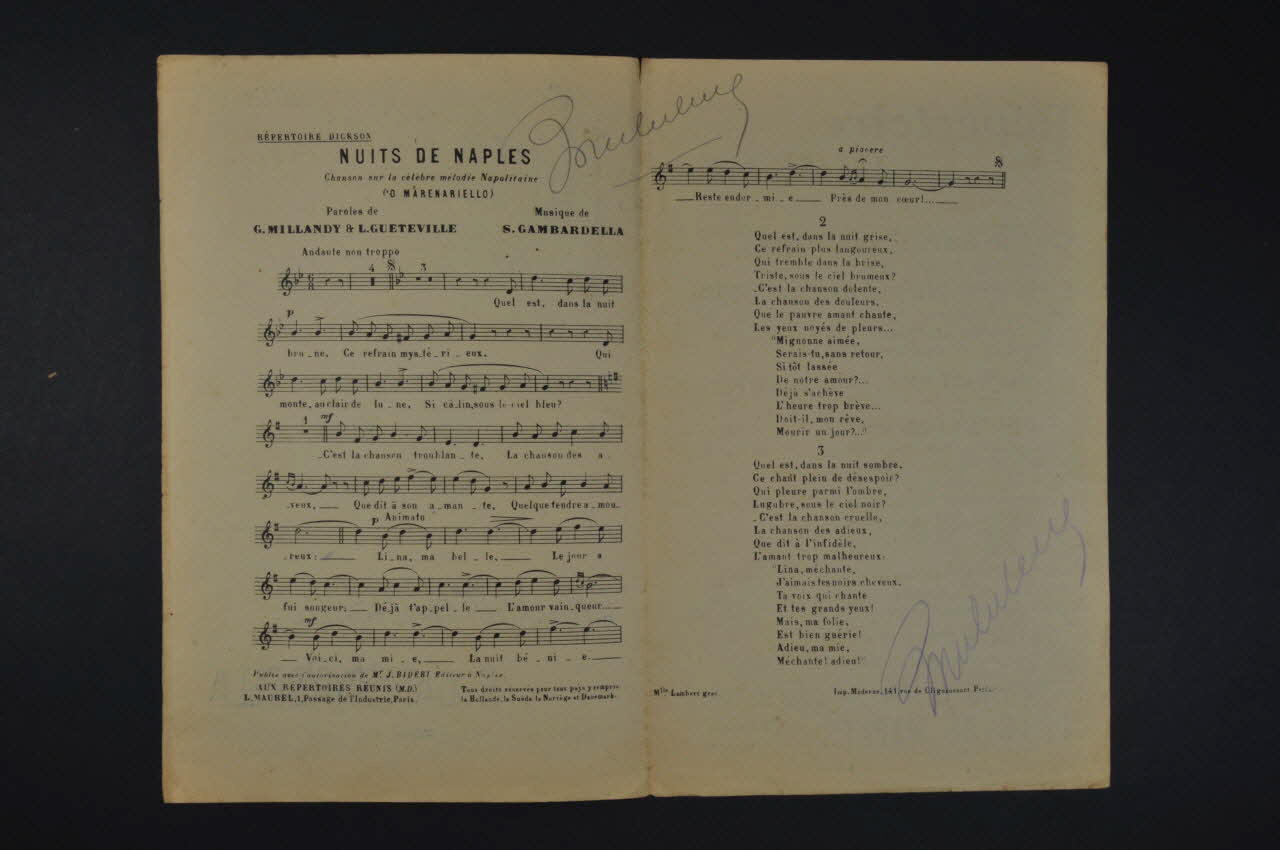 RÉPERTOIRE DICKSON
NUITS DE NAPLES
Chanson sur la célèbre mélodie Napolitaine
('O MARENARIELLO)
Paroles de
G. MILLANDY & L. GUETEVILLE
Musique de
S. GAMBARDELLA
Andante non troppo
4 3
Quel est, dans la nuit
p
bru_ne, Ce refrain mys_té_ri_eux. Qui
monte, au clair de lu_ne, Si câ_lin, sous le ciel bleu?
1 mf
_C'est la chanson troublan_te, La chanson des a_
_veux,__ Que dit à son a_man_te, Quelque tendre a_mou_
p Animato
_reux: Li_na, ma bel_le,__ Le jour a
fui songeur;__ Dé_jà t'ap_pel_le__ L'amour vain_queur...__
mf
__Voi_ci, ma mi_e,__ La nuit bé_ni_e.__
Publié avec l'autorisation de Mr. J. BIDERI Éditeur à Naples.
AUX RÉPERTOIRES RÉUNIS (M.D.)
L. MAUREL, 1, Passage de l'Industrie, Paris.
Tous droits réservés pour tous pays y compris
la Hollande, la Suède, la Norvège et Danemark.
a piacere
__Reste endor_mi_e__ Près de mon cœur!...__
2
Quel est, dans la nuit grise,
Ce refrain plus langoureux,
Qui tremble dans la brise,
Triste, sous le ciel brumeux?
_C'est la chanson dolente,
La chanson des douleurs,
Que le pauvre amant chante,
Les yeux noyés de pleurs...
"Mignonne aimée,
Serais-tu, sans retour,
Si tôt lassée
De notre amour?...
Déjà s'achève
L'heure trop brève...
Doit-il, mon rêve,
Mourir un jour?..."
3
Quel est, dans la nuit sombre,
Ce chant plein de désespoir?
Qui pleure parmi l'ombre,
Lugubre, sous le ciel noir?
_C'est la chanson cruelle,
La chanson des adieux,
Que dit à l'infidèle,
L'amant trop malheureux:
"Lina, méchante,
J'aimais tes noirs cheveux,
Ta voix qui chante
Et tes grands yeux!
Mais, ma folie,
Est bien guérie!
Adieu, ma mie,
Méchante! adieu!"
Mlle Lambert grav.
Imp. Moderne, 141, rue de Clignancourt Paris.